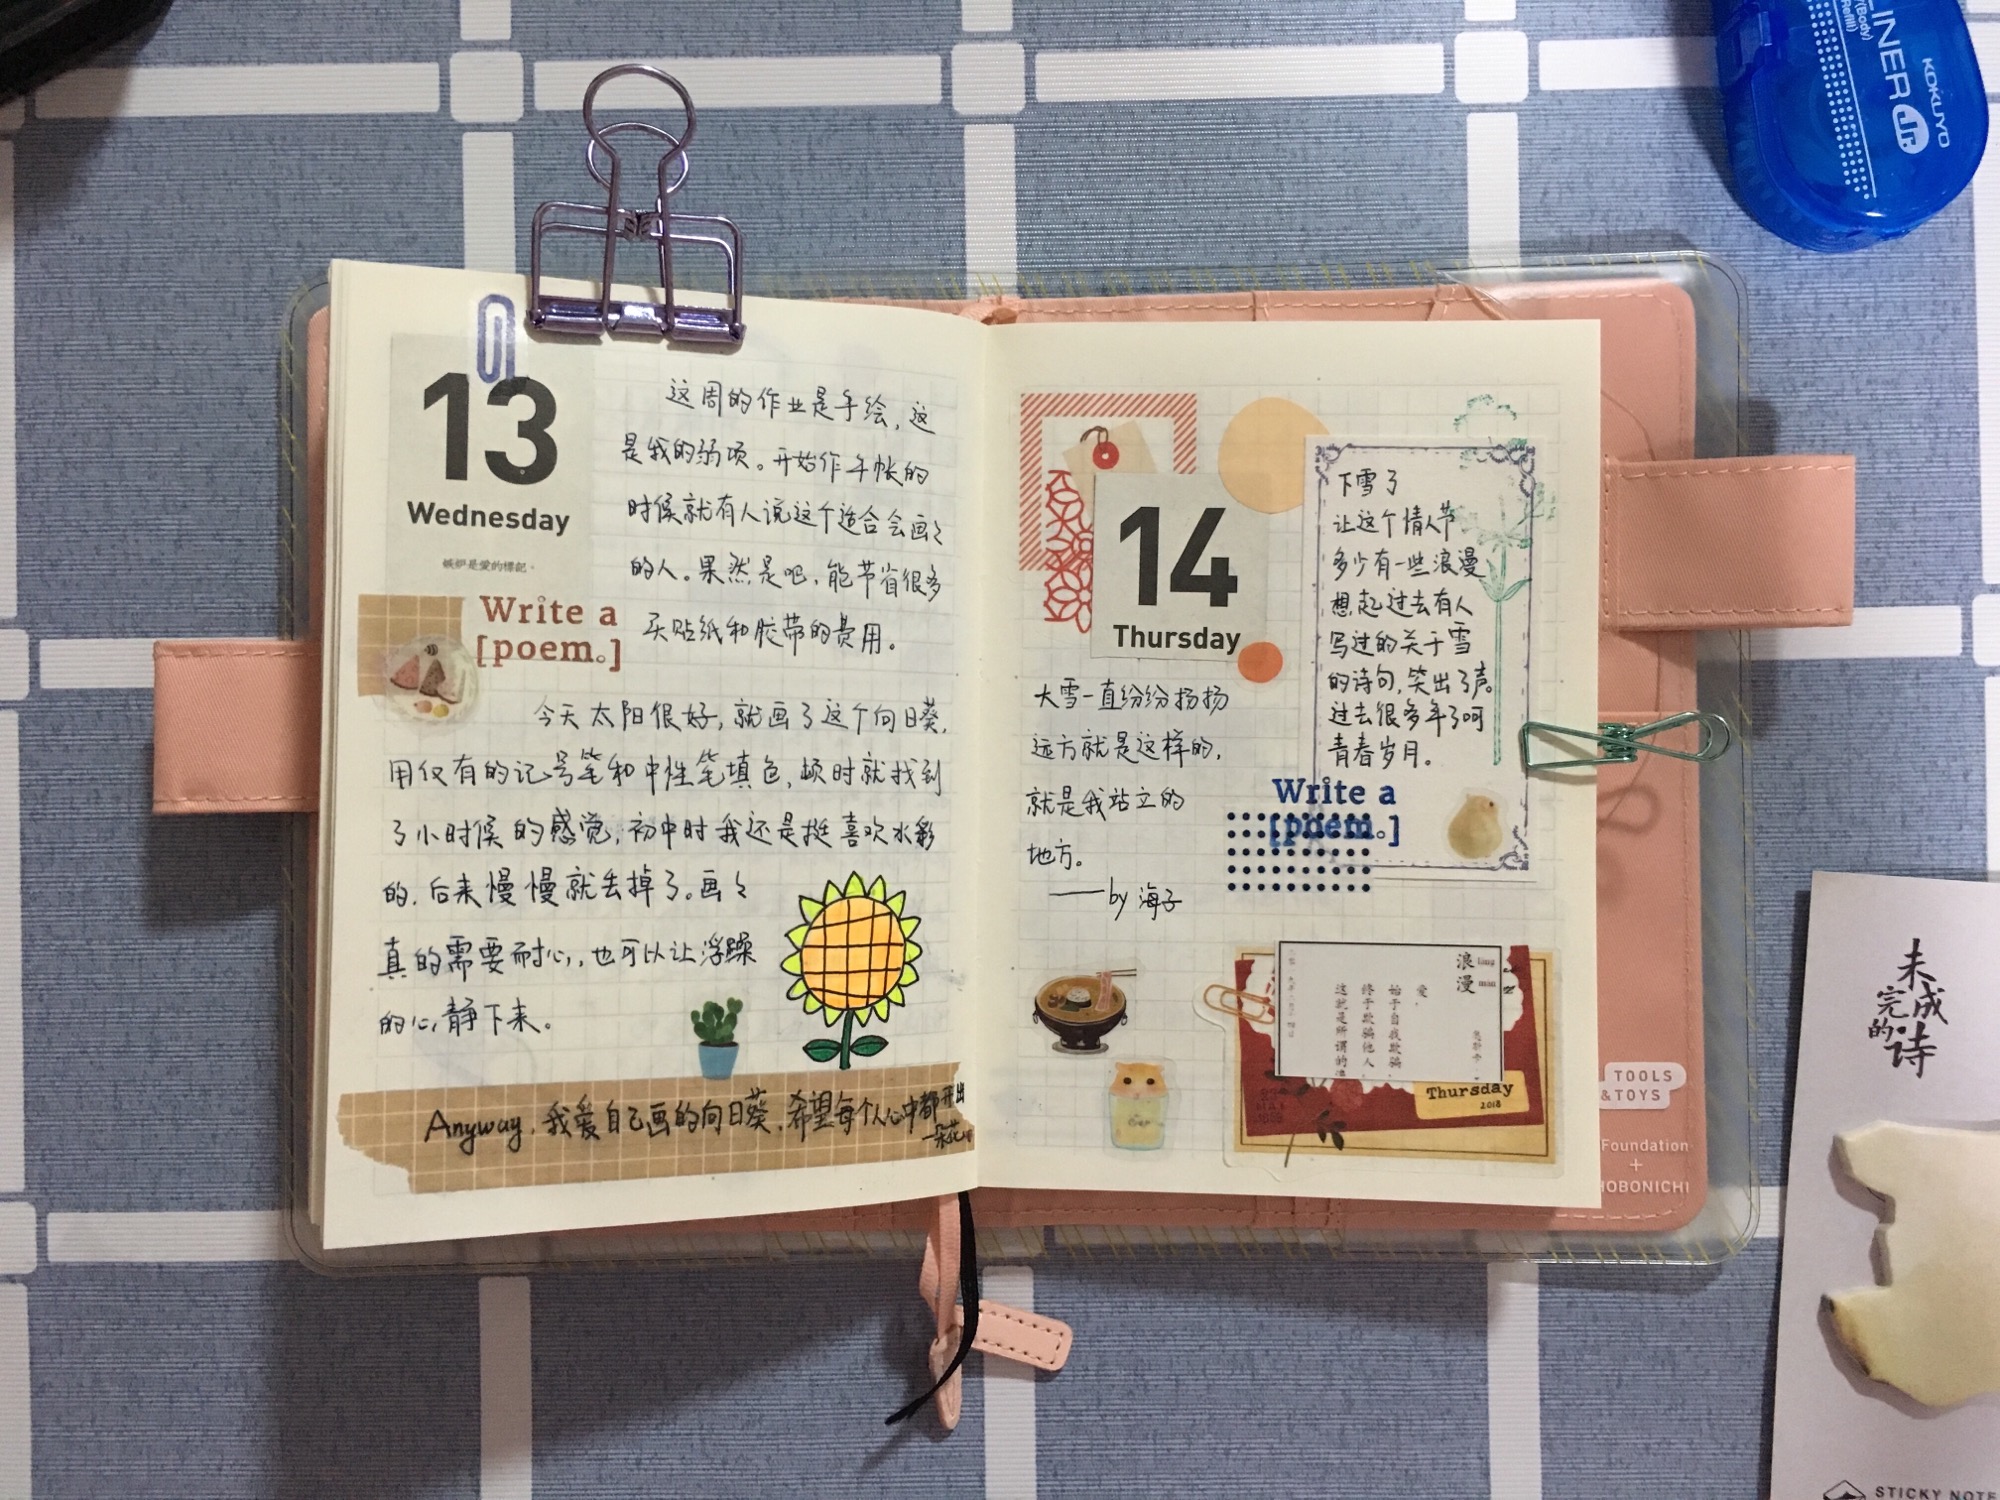 13
Wednesday
嫉妒是愛的標記。
Write a
[poem。]
这周的作业是手绘,这
是我的弱项。开始作手帐的
时候就有人说这个适合会画々
的人。果然是吧,能节省很多
买贴纸和胶带的费用。
今天太阳很好,就画了这个向日葵,
用仅有的记号笔和中性笔填色,顿时就找到
了小时候的感觉,初中时我还是挺喜欢水彩
的,后来慢慢就丢掉了。画々
真的需要耐心,也可以让浮躁
的心静下来。
Anyway,我爱自己画的向日葵,希望每个人心中都开出
一朵花
14
Thursday
大雪一直纷纷扬扬
远方就是这样的,
就是我站立的
地方。
——by 海子
下雪了
让这个情人节
多少有一些浪漫
想起过去有人
写过的关于雪
的诗句,笑出了声。
过去很多年了呵
青春岁月。
Write a
[poem。]
浪漫
爱,
始于自我欺骗,
终于欺骗他人,
这就是所谓的
Thursday
2018
TOOLS
&TOYS
Foundation
+
HOBONICHI
KOKUYO
LINER Jr.
(Body)
(Refill)
未完成的诗
STICKY NOTE